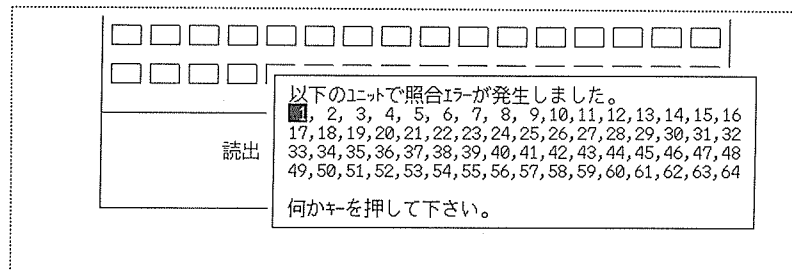 以下のﾕﾆｯﾄで照合ｴﾗｰが発生しました。
1, 2, 3, 4, 5, 6, 7, 8, 9,10,11,12,13,14,15,16
17,18,19,20,21,22,23,24,25,26,27,28,29,30,31,32
33,34,35,36,37,38,39,40,41,42,43,44,45,46,47,48
49,50,51,52,53,54,55,56,57,58,59,60,61,62,63,64
読出
何かｷｰを押して下さい。